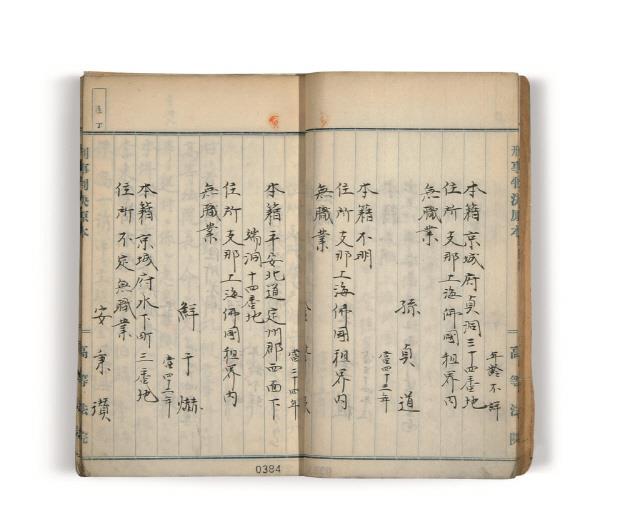 刑事判決原本
高等法院
年齡不詳
本籍京城府貞洞三十四番地
住所支那上海佛國租界内
無職業
孫貞道
當四十三年
本籍不明
住所支那上海佛國租界内
無職業
當三十四年
本籍平安北道定州郡西面下
端洞十四番地
住所支那上海佛國租界内
無職業
鮮于爀
本籍京城府水下町三番地
住所不定無職業
安秉瓚
刑事判決原本
高等法院
0384